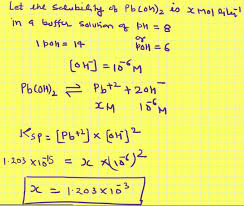 Let the solubility of Pb(OH)₂ is x mol lit⁻¹
in a buffer solution of pH = 8
or
pOH = 14
pOH = 6
[OH⁻] = 10⁻⁶ M
Pb(OH)₂ ⇌ Pb⁺² + 2OH⁻
x M 10⁻⁶ M
Ksp = [Pb⁺²] × [OH⁻]²
1.203 × 10⁻¹⁵ = x × (10⁻⁶)²
x = 1.203 × 10⁻³